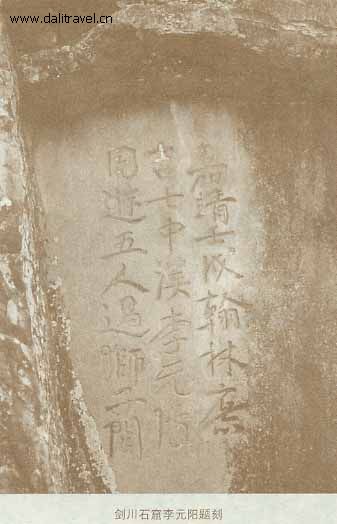 www.dalitravel.cn
嘉靖壬戌翰林庶
吉士中溪李元陽
同遊五人過獅子關
剑川石窟李元阳题刻